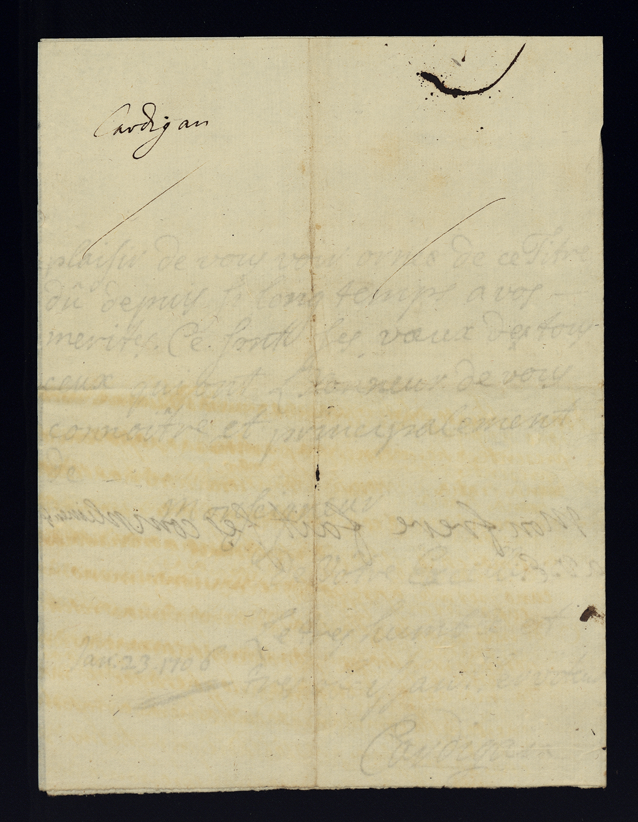 Cardigan
plaisir de vous voir orné de ce Titre
dû depuis si long temps a vos
merites. Ce sont les vœux de tous
ceux qui ont l'honneur de vous
connoitre et principalement
de
Monseigneur
Mon frere fait ses
De Votre
Le tres humble et
Jan. 23 1706
tres
Cardigan